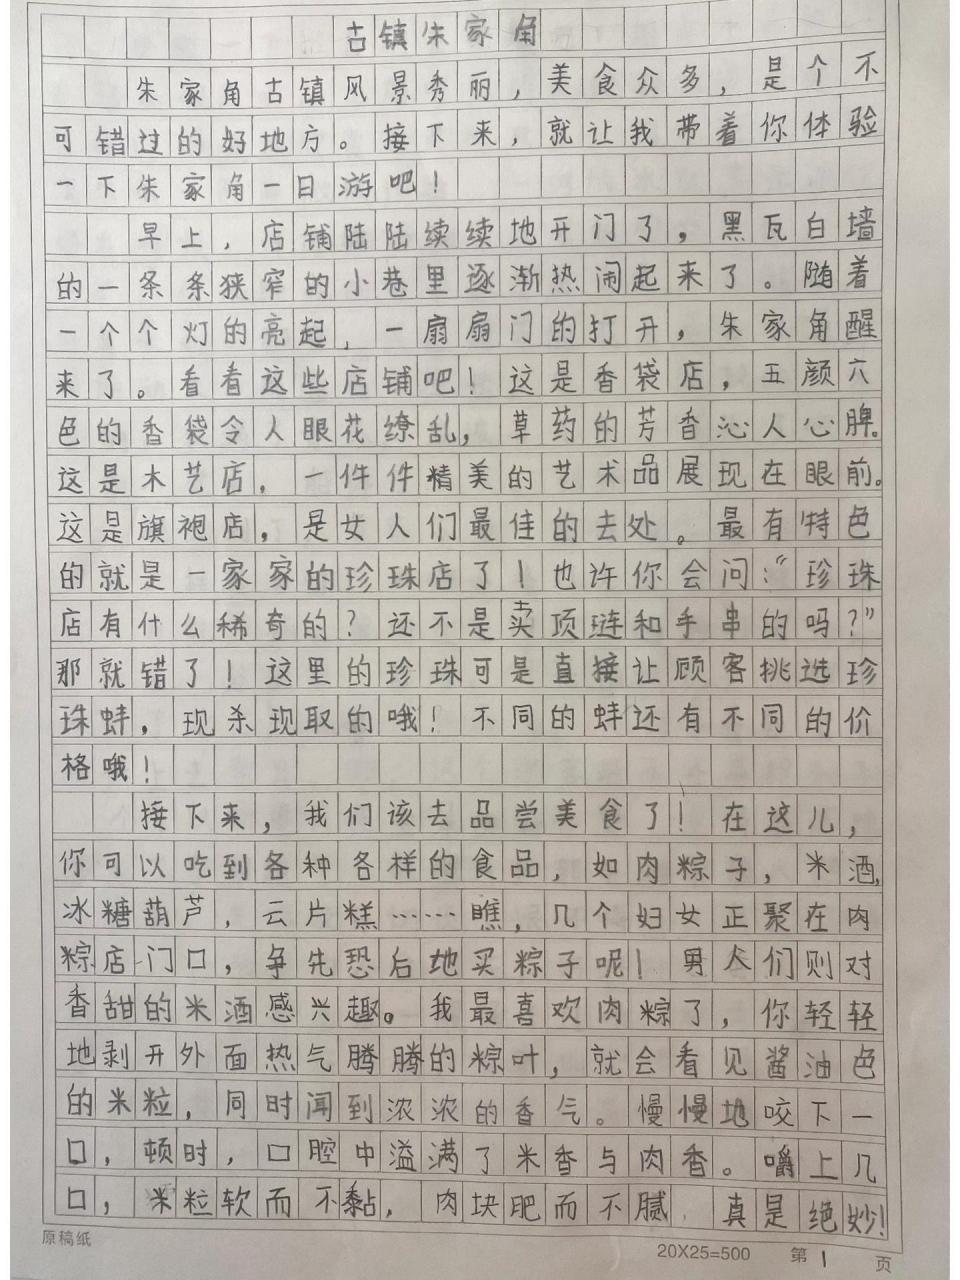 古镇朱家角
朱家角古镇风景秀丽，美食众多，是个不
可错过的好地方。接下来，就让我带着你体验
一下朱家角一日游吧！
早上，店铺陆陆续续地开门了，黑瓦白墙
的一条条狭窄的小巷里逐渐热闹起来了。随着
一个个灯的亮起，一扇扇门的打开，朱家角醒
来了。看看这些店铺吧！这是香袋店，五颜六
色的香袋令人眼花缭乱，草药的芳香沁人心脾。
这是木艺店，一件件精美的艺术品展现在眼前。
这是旗袍店，是女人们最佳的去处。最有特色
的就是一家家的珍珠店了！也许你会问：“珍珠
店有什么稀奇的？还不是卖项琏和手串的吗？”
那就错了！这里的珍珠可是直接让顾客挑选珍
珠蚌，现杀现取的哦！不同的蚌还有不同的价
格哦！
接下来，我们该去品尝美食了！在这儿，
你可以吃到各种各样的食品，如肉粽子，米酒，
冰糖葫芦，云片糕……瞧，几个妇女正聚在肉
粽店门口，争先恐后地买粽子呢！男人们则对
香甜的米酒感兴趣。我最喜欢肉粽了，你轻轻
地剥开外面热气腾腾的粽叶，就会看见酱油色
的米粒，同时闻到浓浓的香气。慢慢地咬下一
口，顿时，口腔中溢满了米香与肉香。嚼上几
口，米粒软而不黏，肉块肥而不腻，真是绝妙！
原稿纸
20X25=500
第1页